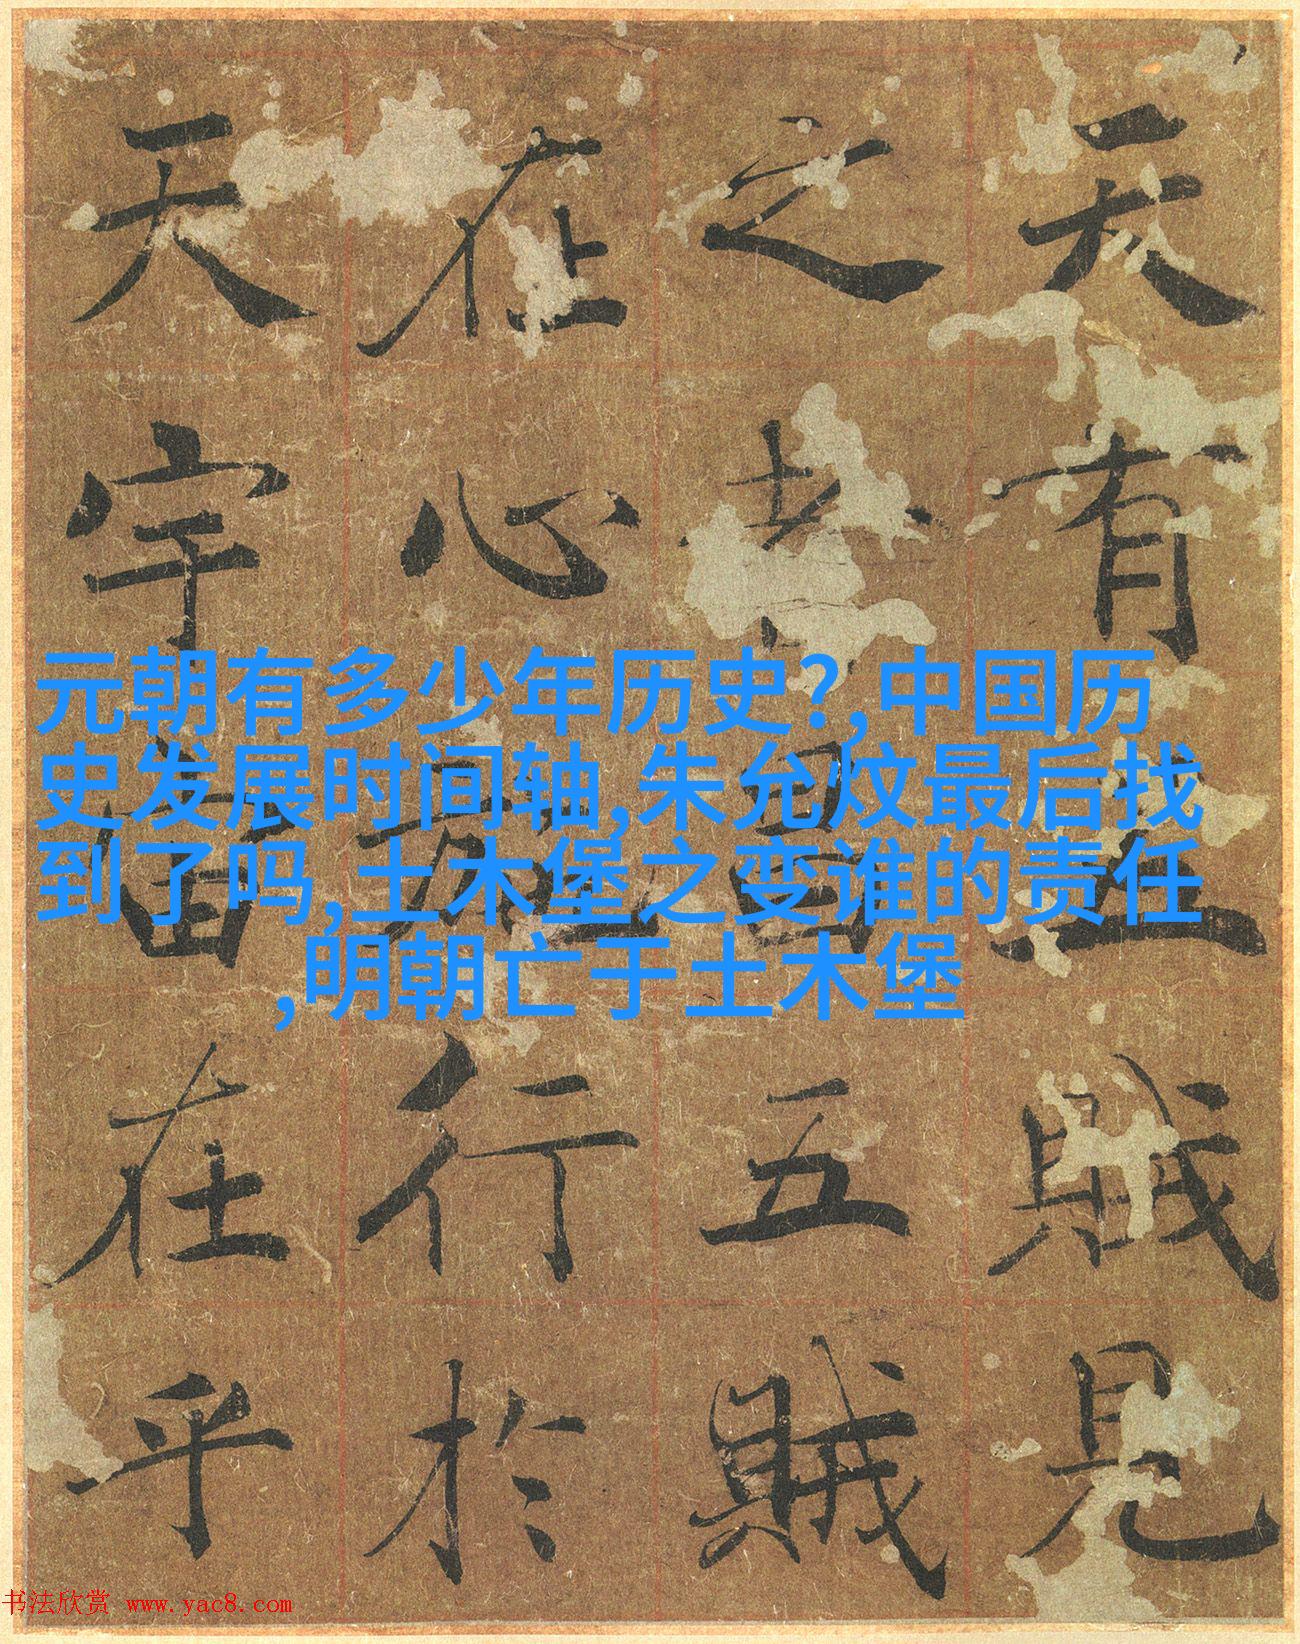 天有五賊見
之者昌五賊
在心施行於
天宇宙在乎
元朝有多少年历史?,中国历
史发展时间轴,朱允炆最后找
到了吗,土木堡之变谁的责任
,明朝亡于土木堡
书法欣赏 www.yac8.com